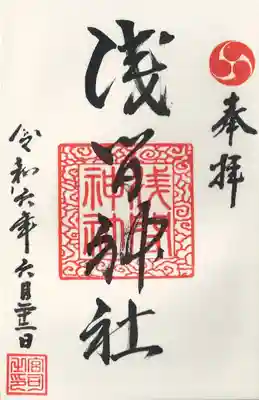 奉拝
浅間神社
浅間神社
令和六年六月廿三日
宮司之印